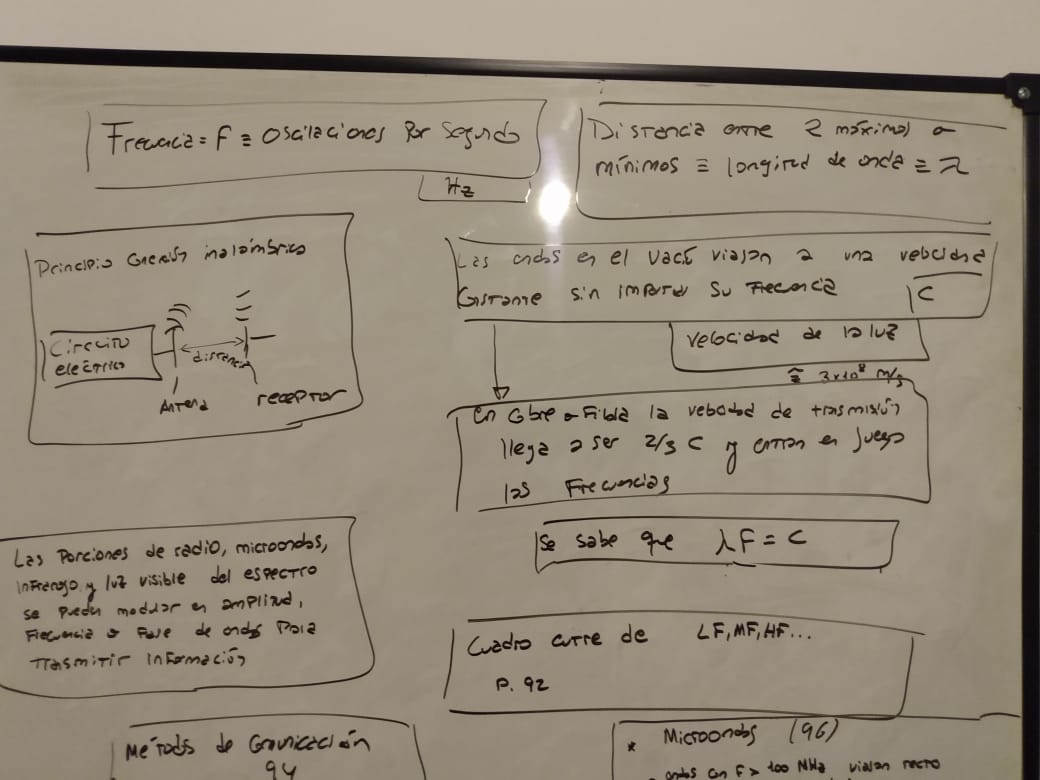 Frecuencia = F ≡ Oscilaciones Por Segundo
Hz
Distancia entre 2 máximos o
mínimos ≡ longitud de onda ≡ λ
Principio Conexión inalámbrica
Circuito
eléctrico
distancia
Antena
receptor
Las ondas en el vacío viajan a una velocidad
Constante sin importar su Frecuencia
C
velocidad de la luz
≅ 3x10⁸ m/s
en Cobre o Fibra la velocidad de trasmisión
llega a ser 2/3 C y entran en juego
las Frecuencias
Se sabe que λF = C
Las Porciones de radio, microondas,
infrarojo y luz visible del espectro
se pueden modular en amplitud,
Frecuencia o Fase de ondas Para
Trasmitir información
Cuadro entre de LF, MF, HF...
P. 92
Métodos de Comunicación
94
* Microondas (96)
ondas con F > 100 MHz viajan recto